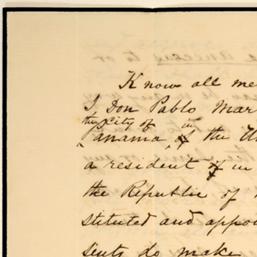 Know all me
I, Don Pablo Mar
the City of in
Panama, of the U
a resident of in
the Republic of
stituted and appoi
sents do make